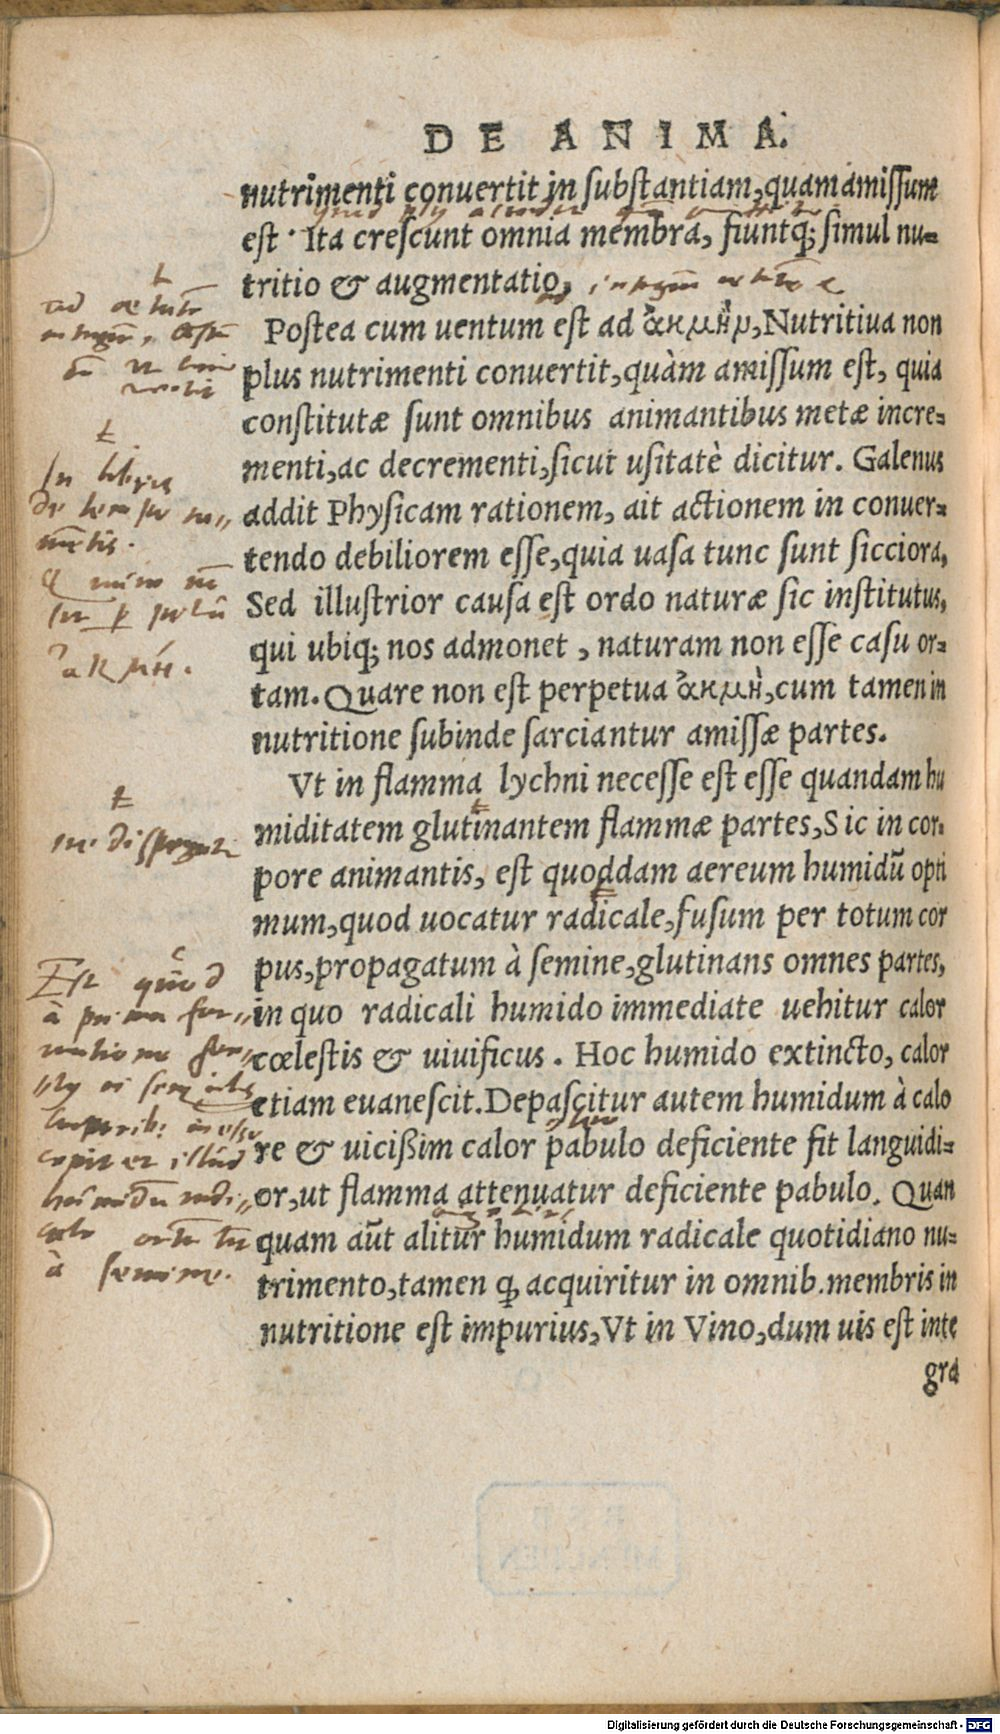 DE ANIMA.
nutrimenti conuertit in substantiam, quam amissum
est. Ita crescunt omnia membra, fiuntq; simul nu-
tritio & augmentatio,
Postea cum uentum est ad ἀκμὴν, Nutritiua non
plus nutrimenti conuertit, quàm amissum est, quia
constitutæ sunt omnibus animantibus metæ incre-
menti, ac decrementi, sicut usitatè dicitur. Galenus
addit Physicam rationem, ait actionem in conuer-
tendo debiliorem esse, quia uasa tunc sunt sicciora,
Sed illustrior causa est ordo naturæ sic institutus,
qui ubiq; nos admonet, naturam non esse casu or-
tam. Quare non est perpetua ἀκμὴ, cum tamen in
nutritione subinde sarciantur amissæ partes.
Vt in flamma lychni necesse est esse quandam hu
miditatem glutinantem flammæ partes, Sic in cor-
pore animantis, est quoddam aereum humidū opti
mum, quod uocatur radicale, fusum per totum cor
pus, propagatum à semine, glutinans omnes partes,
in quo radicali humido immediate uehitur calor
cœlestis & uiuificus. Hoc humido extincto, calor
etiam euanescit. Depascitur autem humidum à calo
re & uicißim calor pabulo deficiente fit languidi-
or, ut flamma attenuatur deficiente pabulo. Quan
quam aūt alitur humidum radicale quotidiano nu-
trimento, tamen q, acquiritur in omnib. membris in
nutritione est impurius, Vt in Vino, dum uis est inte
gra
In libris
ἀκμή.
Est quod
à prima for-
à semine.
B S B
MÜNCHEN
Digitalisierung gefördert durch die Deutsche Forschungsgemeinschaft - DFG